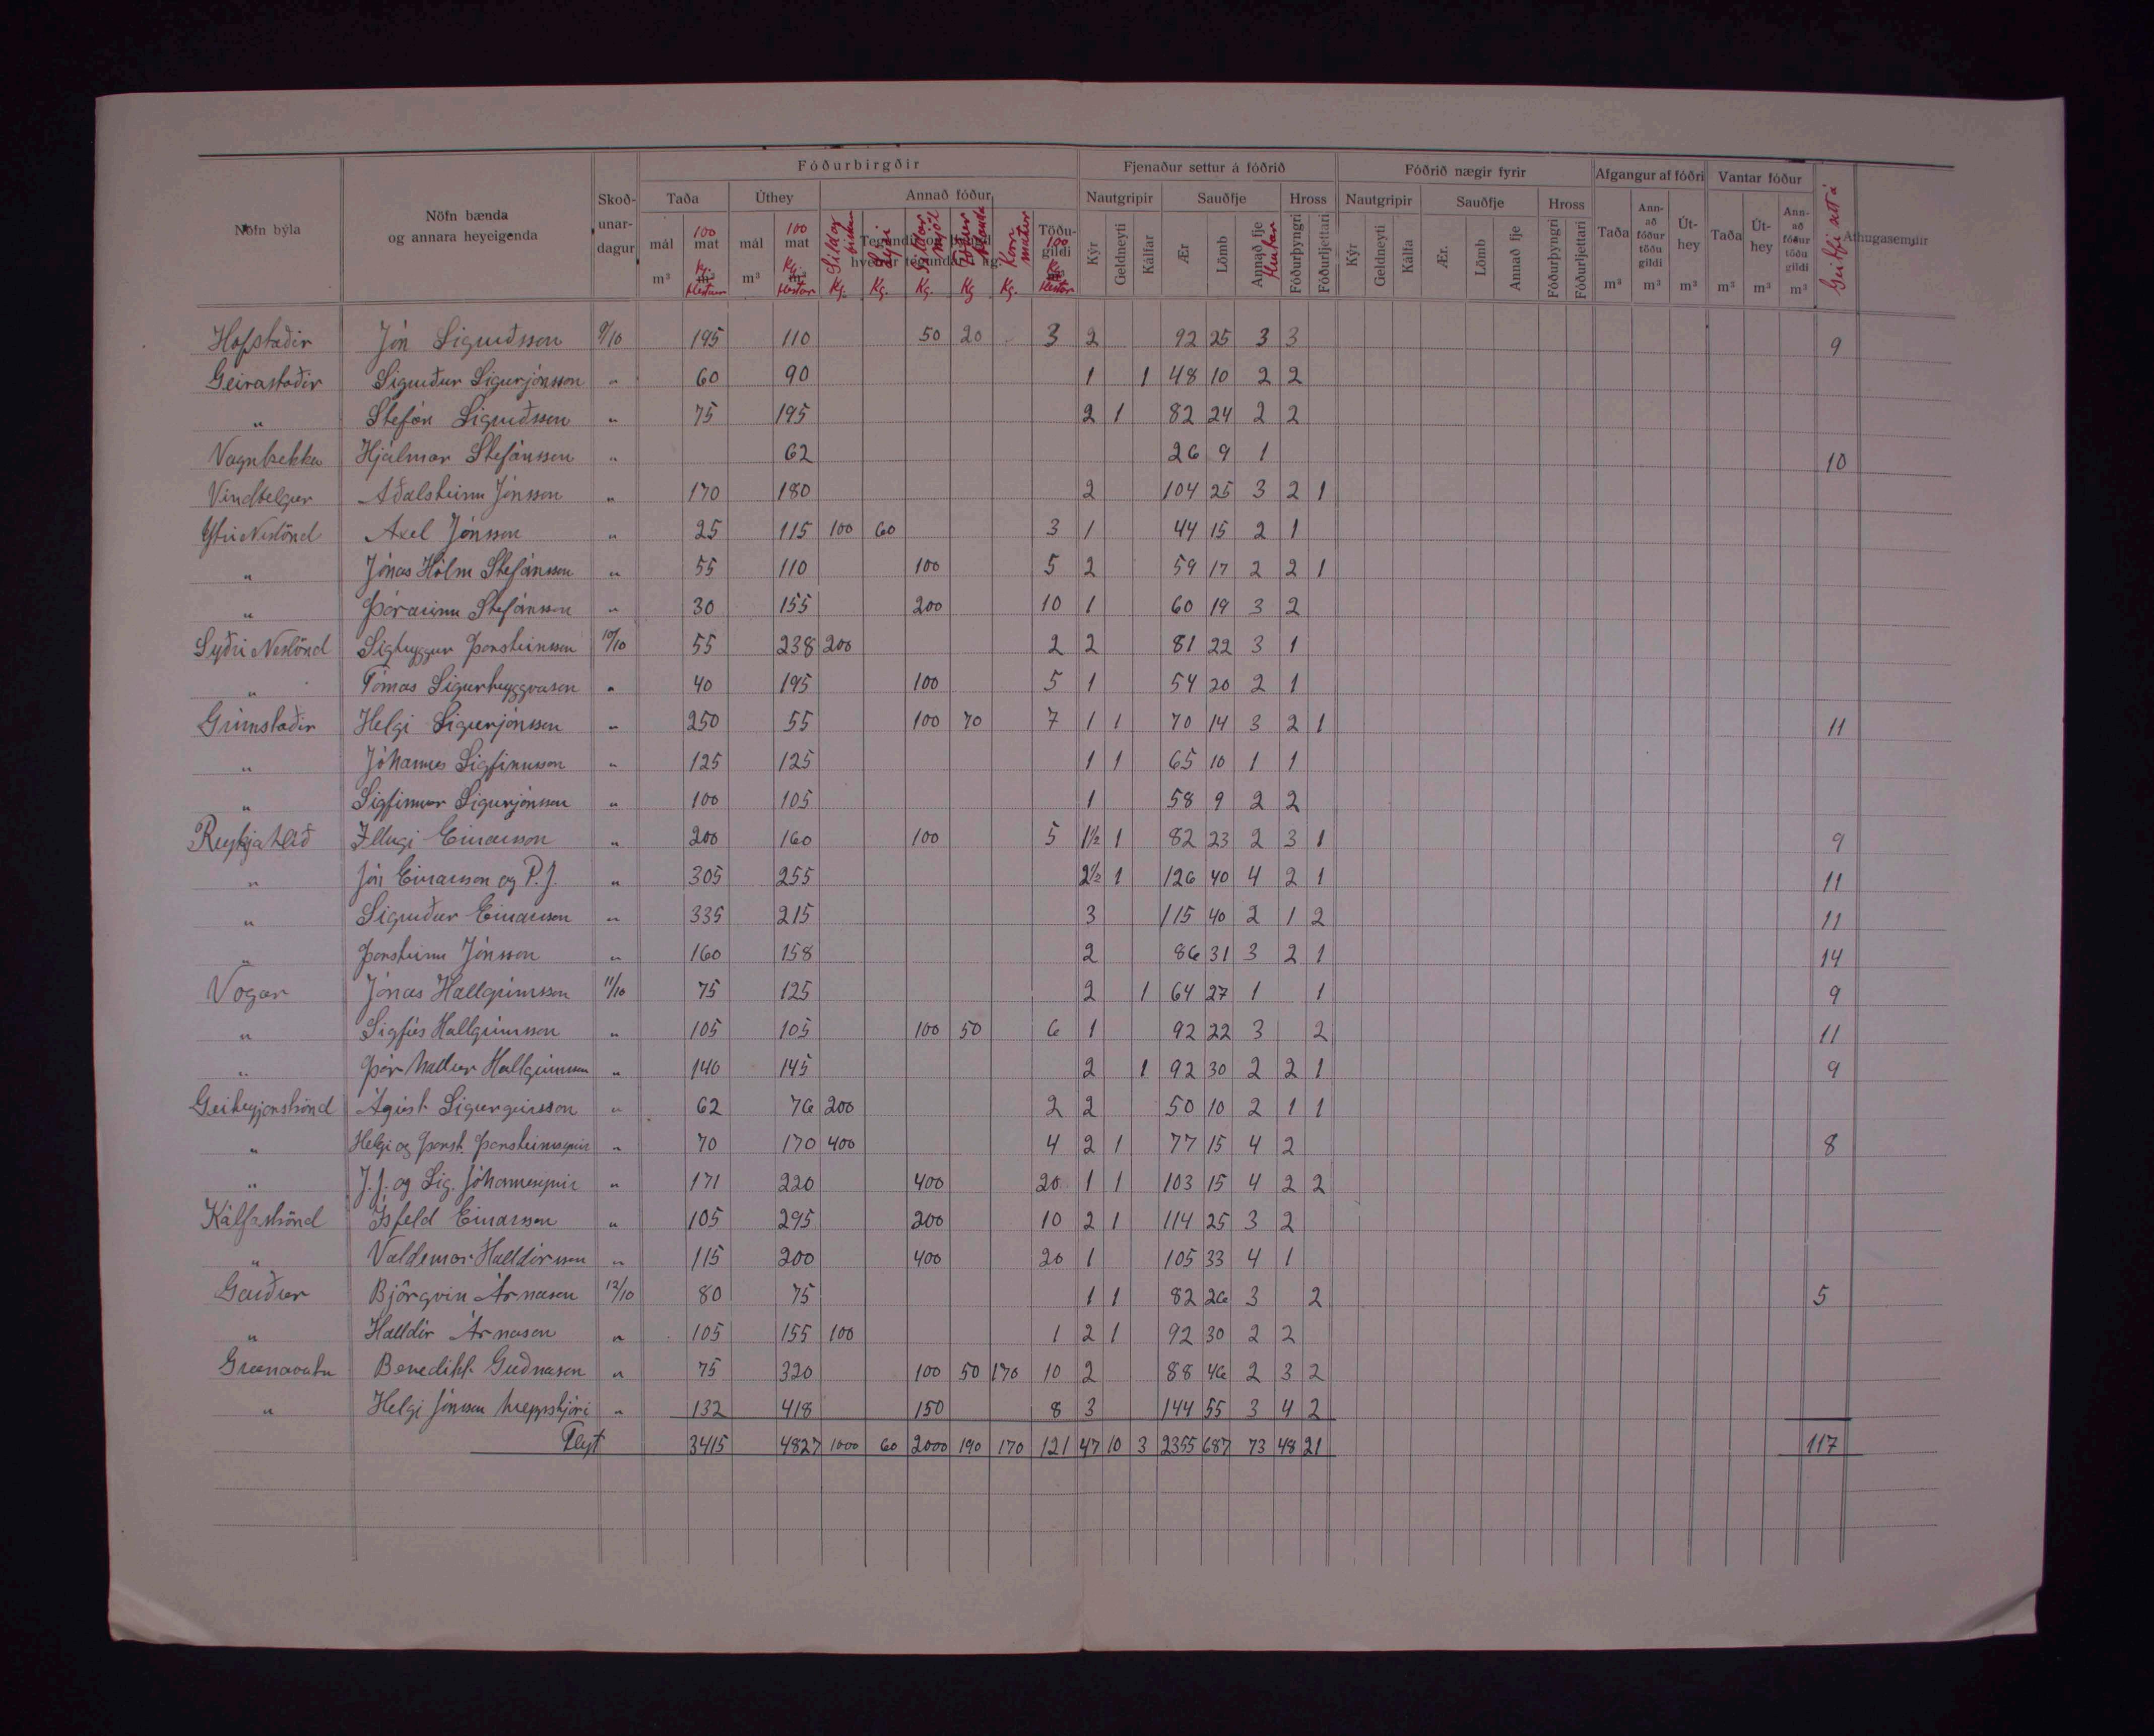 Fóðurbirgðir Fjenaður settur á fóðrið Fóðrið nægir fyrir Afgangur af fóðri Vantar fóður
Nöfn býla Nöfn bænda og annara heyeigenda Skoð-unar-dagur Taða Úthey Annað fóður Nautgripir Sauðfje Hross Nautgripir Sauðfje Hross Taða Ann-að fóður töðu gildi Út-hey Taða Út-hey Ann-að fóður töðu gildi Athugasemdir
mál 100 mat mál 100 mat Tegundir og þungi hverrar tegundar kg. Korn matur Töðu-gildi 100 Kýr Geldneyti Kálfar Ær Lömb Annað fje Hrútar Fóðurþyngri Fóðurljettari Kýr Geldneyti Kálfa Ær. Lömb Annað fje Fóðurþyngri Fóðurljettari
m³ kg. m³ Hestar m³ kg. m³ Hestar Kg. Kg. Kg. Kg Kg. kg m³ Hestar m³ m³ m³ m³ m³ m³
Hofstaðir Jón Sigurðsson 9/10 195 110 50 20 3 2 92 25 3 3 9
Geirastaðir Sigurður Sigurjónsson " 60 90 1 1 48 10 2 2
" Stefán Sigurðsson " 75 195 2 1 82 24 2 2
Vagnbrekka Hjálmar Stefánsson " 62 26 9 1 10
Vindbelgur Aðalsteinn Jónsson " 170 180 2 104 25 3 2 1
Ytri Neslönd Axel Jónsson " 25 115 100 60 3 1 44 15 2 1
" Jónas Hólm Stefánsson " 55 110 100 5 2 59 17 2 2 1
" Þórarinn Stefánsson " 30 155 200 10 1 60 19 3 2
Syðri Neslönd Sigtryggur Þorsteinsson 10/10 55 238 200 2 2 81 22 3 1
" Tómas Sigurtryggvason " 40 195 100 5 1 54 20 2 1
Grímstaðir Helgi Sigurjónsson " 250 55 100 70 7 1 1 70 14 3 2 1 11
" Jóhannes Sigfinnsson " 125 125 1 1 65 10 1 1
" Sigfinnur Sigurjónsson " 100 105 1 58 9 2 2
Reykjahlíð Illugi Einarsson " 200 160 100 5 1½ 1 82 23 2 3 1 9
" Jón Einarsson og P.J. " 305 255 2½ 1 126 40 4 2 1 11
" Sigurður Einarsson " 335 215 3 115 40 2 1 2 11
" Þorsteinn Jónsson " 160 158 2 86 31 3 2 1 14
Vogar Jónas Hallgrímsson 11/10 75 125 2 1 64 27 1 1 9
" Sigfús Hallgrímsson " 105 105 100 50 6 1 92 22 3 2 11
" Þórhallur Hallgrímsson " 140 145 2 1 92 30 2 2 1 9
Geiteyjarströnd Ágúst Sigurgeirsson " 62 76 200 2 2 50 10 2 1 1
" Helgi og Þorst. Þorsteinssynir " 70 170 400 4 2 1 77 15 4 2 8
" J.J. og Sig. Jóhannessynir " 171 220 400 20 1 1 103 15 4 2 2
Kálfaströnd Ísfeld Einarsson " 105 295 200 10 2 1 114 25 3 2
" Valdemar Halldórsson " 115 200 400 20 1 105 33 4 1
Garður Björgvin Árnason 12/10 80 75 1 1 82 26 3 2 5
" Halldór Árnason " 105 155 100 1 2 1 92 30 2 2
Grænavatn Benedikt Guðnason " 75 320 100 50 170 10 2 88 46 2 3 2
" Helgi Jónsson hreppstjóri " 132 418 150 8 3 144 55 3 4 2
Flyt 3415 4827 1000 60 2000 190 170 121 47 10 3 2355 687 73 48 21 117